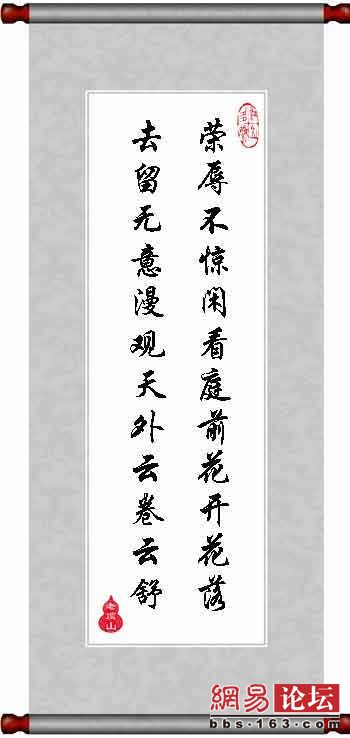 荣辱不惊闲看庭前花开花落
去留无意漫观天外云卷云舒
網易论坛
bbs·163.com